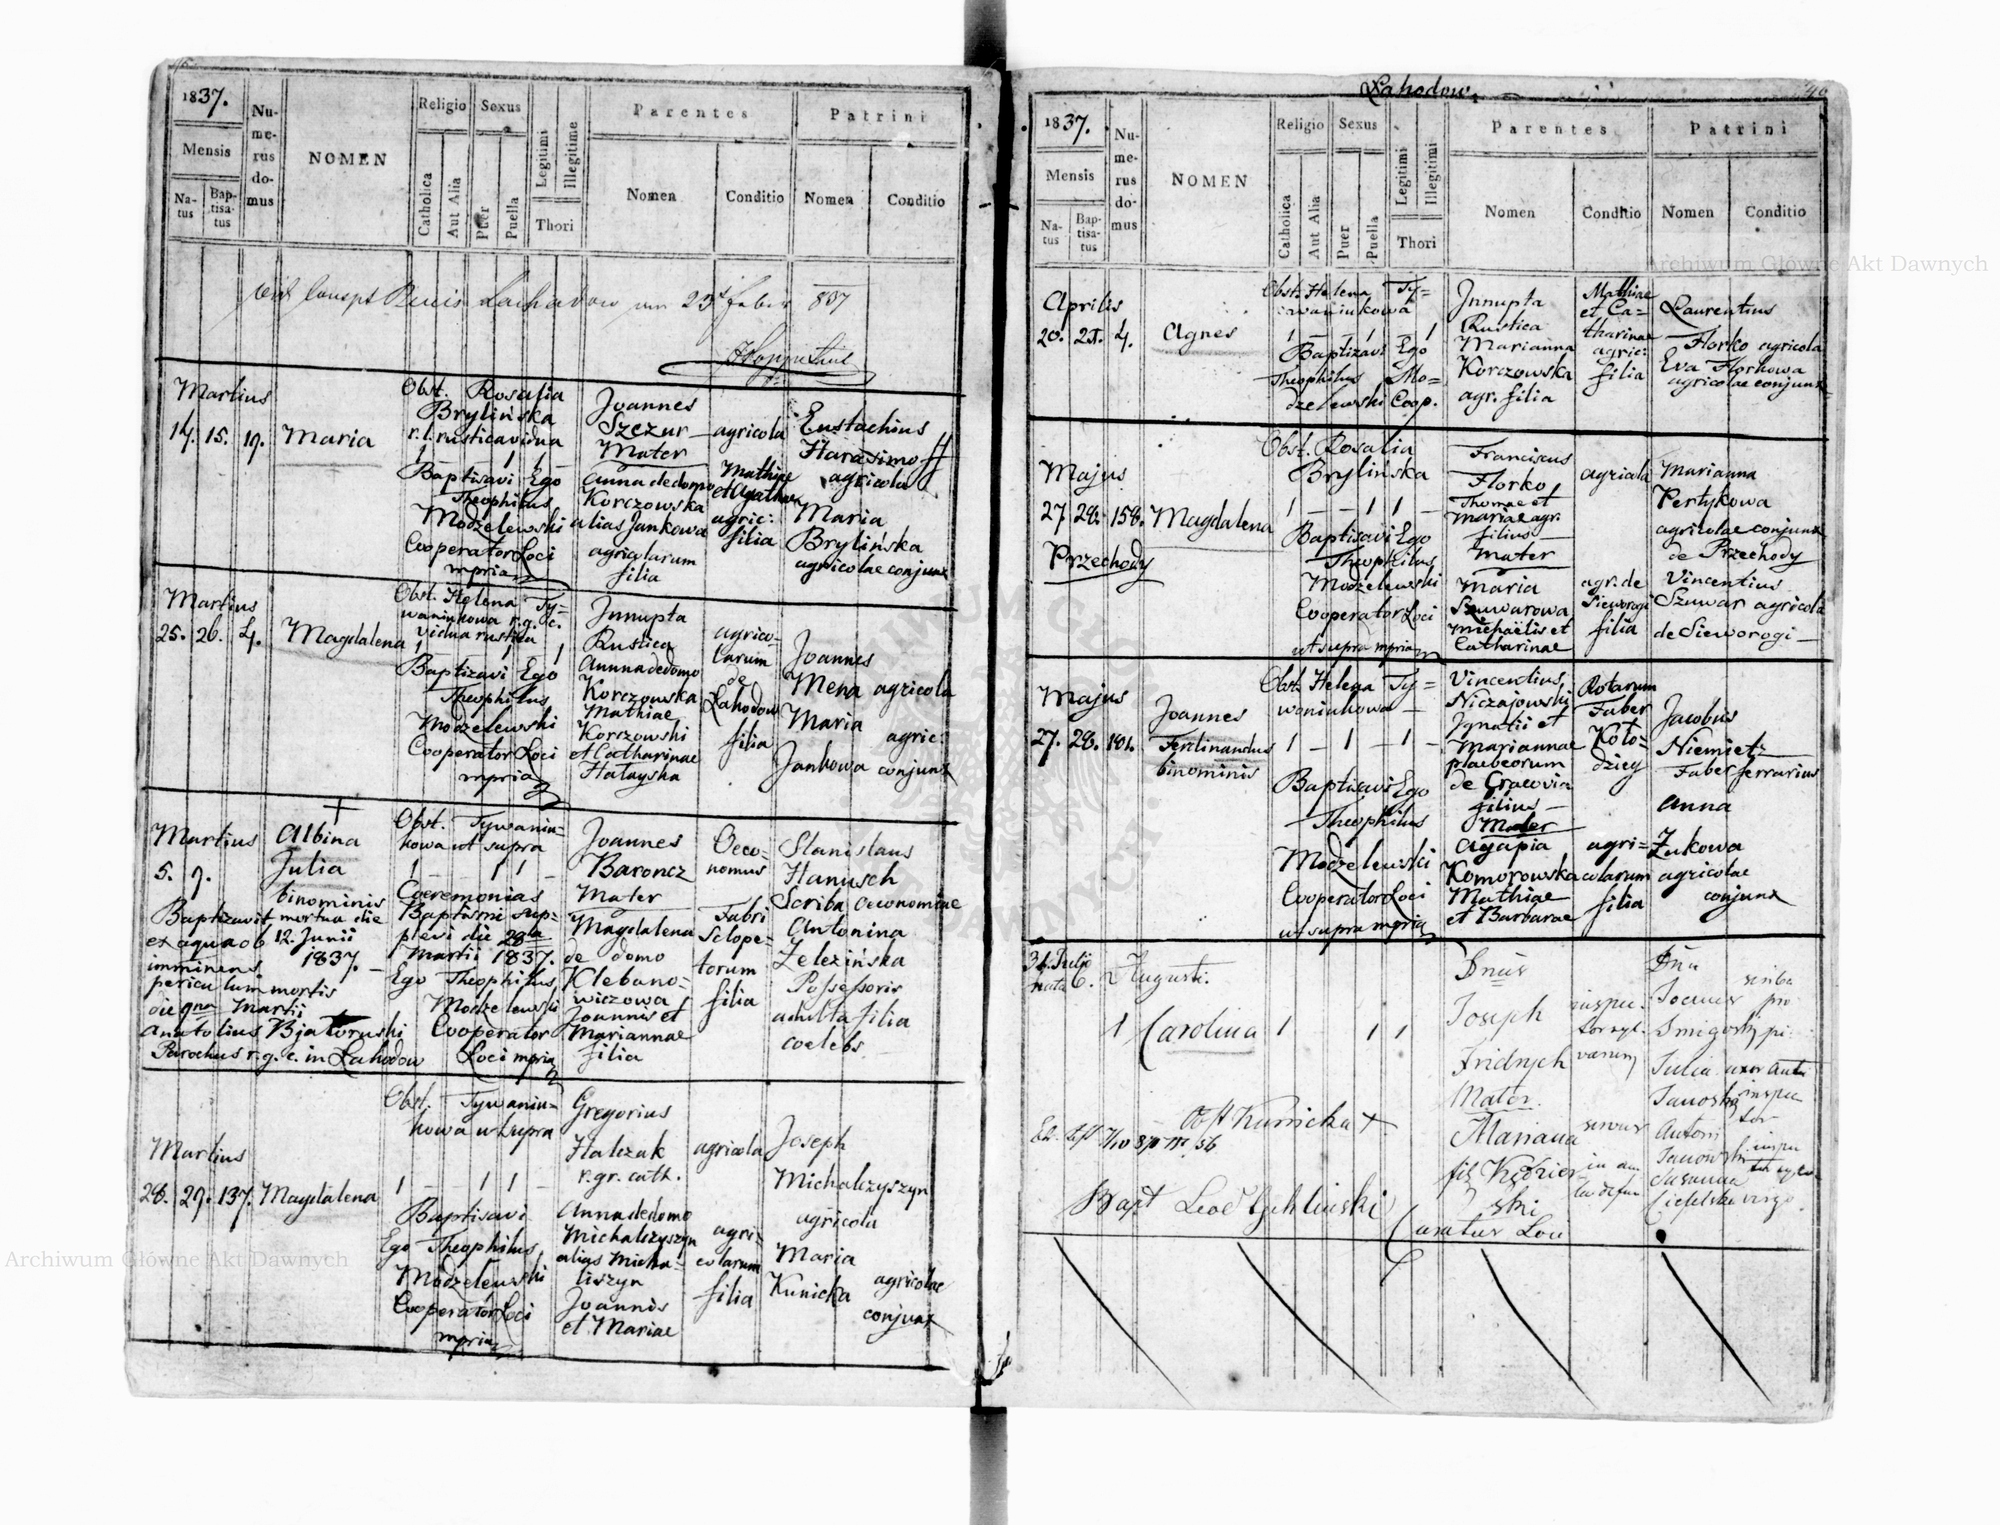 1837.
Mensis
Na-
tus
Bap-
tisa-
tus
Nu-
me-
rus
do-
mus
NOMEN
Religio
Catholica
Aut Alia
Sexus
Puer
Puella
Legitimi
Illegitime
Thori
Parentes
Nomen
Conditio
Patrini
Nomen
Conditio
Lachadow 23 837
Martius
14. 15. 19. Maria
Obst. Rosalia
Brylińska
r. l. rustica vidua
1 — 1 1 —
Baptisavi Ego
Theophilus
Modzelewski
Cooperator Loci
mpria
Joannes
Szczur
Mater
Anna de domo
Korczowska
alias Jankowa
agricolarum
filia
agricola
Mathiae
et Agathae
agric:
filia
Eustachius
Harasimo
agricola
Maria
Brylińska
agricolae conjunx
Martius
25. 26. 4. Magdalena
Obst. Helena Ty=
waniukowa r. g. c.
vidua rustica
1 1 1
Baptizavi Ego
Theophilus
Modzelewski
Cooperator Loci
mpria
Innupta
Rustica
Anna de domo
Korczowska
Mathiae
Korczowski
et Catharinae
agrico-
larum
de
Lahodow
filia
Joannes
Mena agricola
Maria
agric:
Jankowa conjunx
Martius
5. 9.
Albina
Julia
binominis
mortua die
12. Junii
1837.
Baptizavit
ex aqua ob
imminens
periculum mortis
die 9na Martii
Anatolius
Parochus r. g. c. in Lahodow
Obst. Tywaniu-
kowa ut supra
1 — 1 1 —
Coeremonias
Baptismi sup-
plevi die 28va
Martii 1837.
Ego Theophilus
Modzelewski
Cooperator
Loci mpria
Joannes
Baroncz
Mater
Magdalena
de domo
Klebano-
wiczowa
Joannis et
Mariannae
filia
Oeco-
nomus
Fabri
Sclope-
torum
filia
Stanislaus
Hanusch
Scriba oeconomiae
Antonina
Zelezińska
Possessoris
adulta filia
coelebs
Martius
28. 29. 137. Magdalena
Obst. Tywaniu-
kowa ut supra
1 — 1 1 —
Baptisavi
Ego Theophilus
Modzelewski
Cooperator Loci
mpria
Gregorius
Halczak
r. gr. cath.
Anna de domo
Michalczyszyn
alias Micha-
liszyn
Joannis
et Mariae
agricola
agri-
colarum
filia
Joseph
Michalczyszyn
agricola
Maria
Kunicka agricolae
conjunx
Lahodow.
1837.
Mensis
Na-
tus
Bap-
tisa-
tus
Nu-
me-
rus
do-
mus
NOMEN
Religio
Catholica
Aut Alia
Sexus
Puer
Puella
Legitimi
Illegitimi
Thori
Parentes
Nomen
Conditio
Patrini
Nomen
Conditio
Aprilis
20. 21. 4. Agnes
Obst. Helena Ty=
waniukowa
1 — 1 — 1
Baptizavi Ego
Theophilus Mo=
dzelewski Coop.
Innupta
Rustica
Marianna
Korczowska
agr. filia
Mathiae
et Ca=
tharinae
agric:
filia
Laurentius
Florko agricola
Eva Florkowa
agricolae conjunx
Majus
27 28. 158. Magdalena
Przechody
Obst. Rosalia
Brylińska
1 — — 1 1 —
Baptisavi Ego
Theophilus
Modzelewski
Cooperator Loci
ut supra mpria
Franciscus
Florko
Thomae et
Mariae agr.
filius
Mater
Maria
Szuwarowa
Michaëlis et
Catharinae
agricola
agr. de
Sieworogi
filia
Marianna
Pertykowa
agricolae conjunx
de Przechody
Vincentius
Szuwar agricola
de Sieworogi
Majus
27. 28. 181.
Joannes
Ferdinandus
binominis
Obst. Helena Ty=
waniukowa
1 — 1 — 1 —
Baptisavi Ego
Theophilus
Modzelewski
Cooperator Loci
ut supra mpria
Vincentius
Niczajowski
Ignatii et
Mariannae
plaebeorum
de Cracovia
filius
Mater
Agapia
Komorowska
Mathiae
et Barbarae
Rotarum
Faber
Koło=
dziey
agri=
colarum
filia
Jacobus
Niemietz
Faber ferrarius
Anna
Zukowa
agricolae
conjunx
31. Julio
nata 6. Augusti.
1 Carolina 1 1 1
Obst Kunicka +
Bapt
Curatus Loci
Dnus
Joseph
Fridrych
Mater.
Mariana
Dna
scriba
Julia uxor
Antoni
Susanna
virgo
Archiwum Główne Akt Dawnych
Archiwum Główne Akt Dawnych